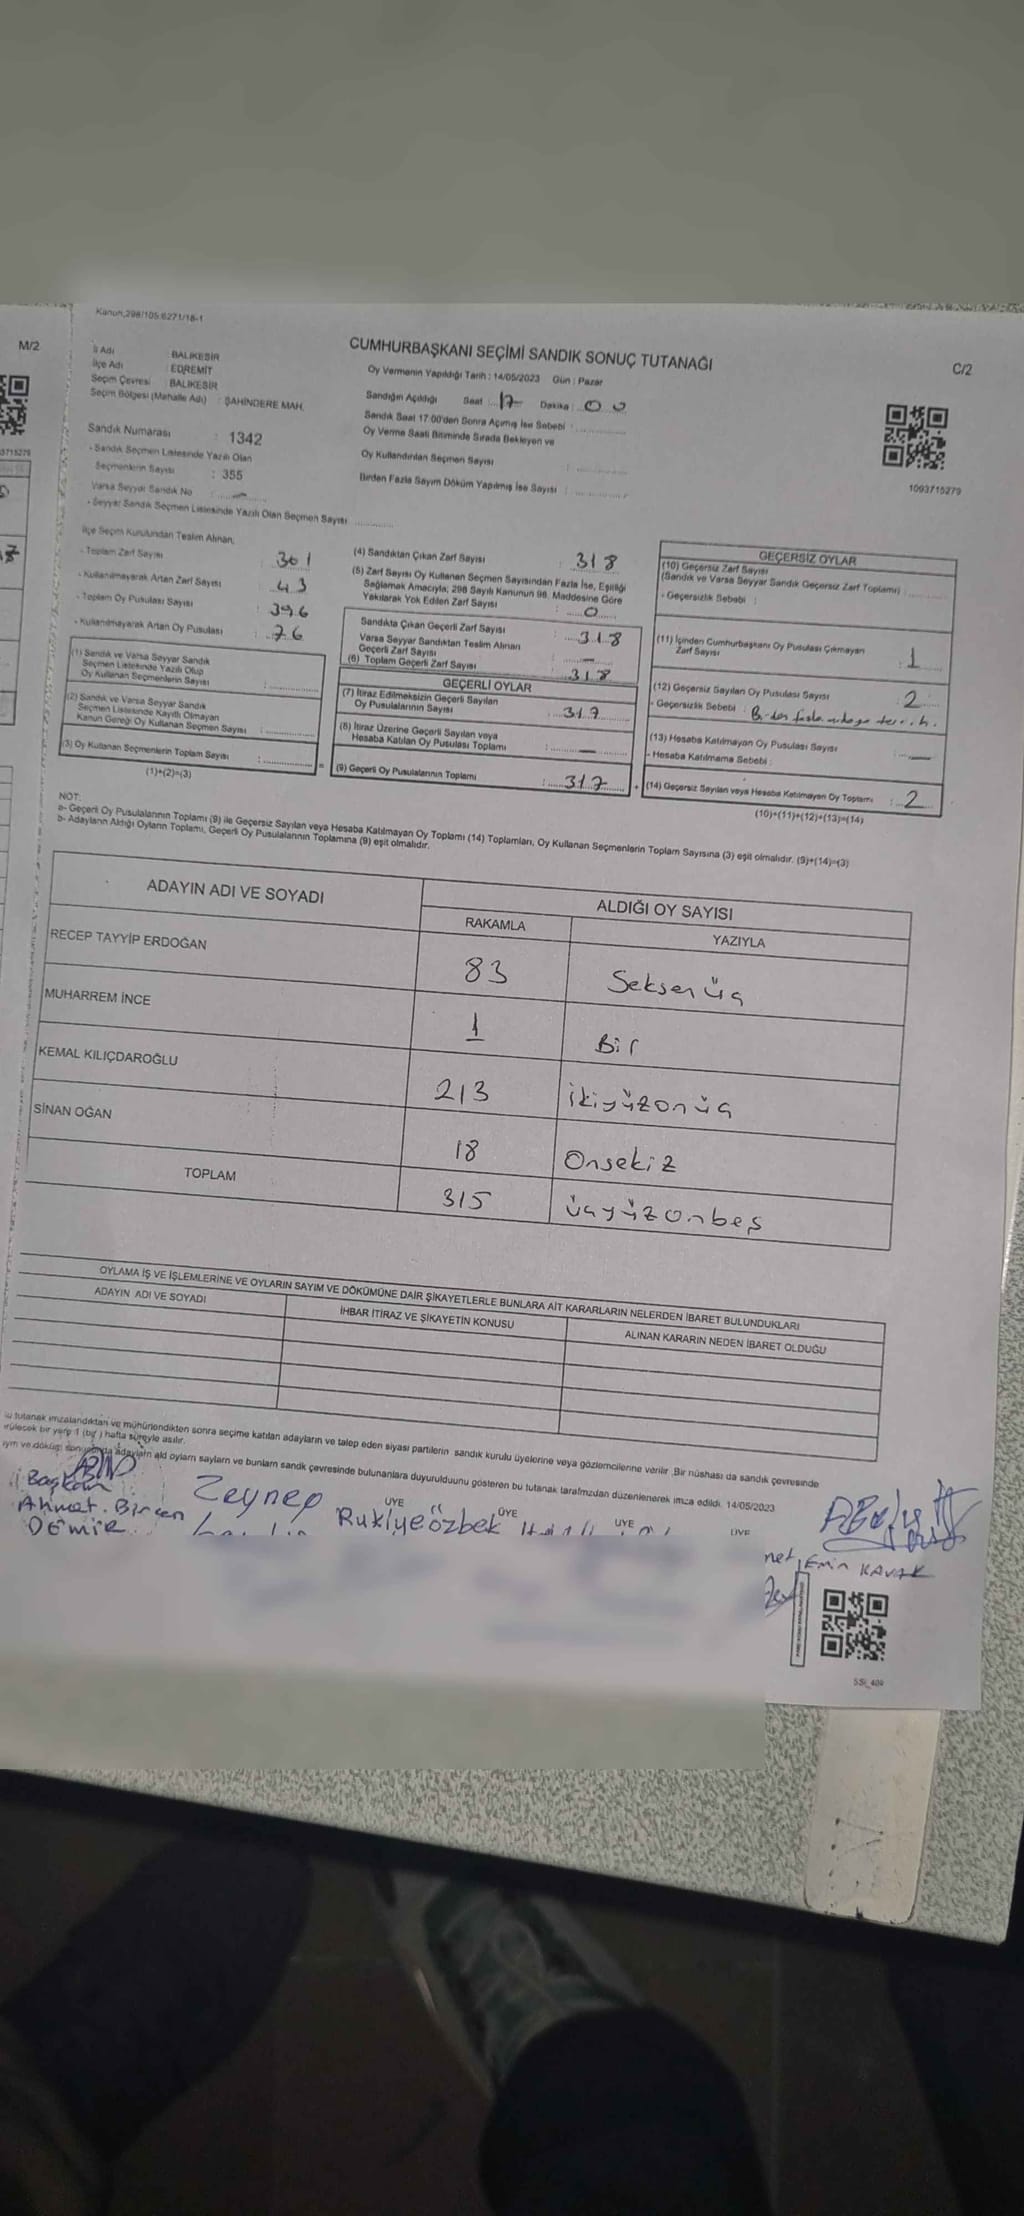 Kanun,298/105:6271/18-1
M/2
C/2
CUMHURBAŞKANI SEÇİMİ SANDIK SONUÇ TUTANAĞI
İl Adı : BALIKESİR
İlçe Adı : EDREMİT
Seçim Çevresi : BALIKESİR
Seçim Bölgesi (Mahalle Adı) : ŞAHİNDERE MAH.
Sandık Numarası : 1342
- Sandık Seçmen Listesinde Yazılı Olan
Seçmenlerin Sayısı : 355
Varsa Seyyar Sandık No : —
- Seyyar Sandık Seçmen Listesinde Yazılı Olan Seçmen Sayısı
Oy Vermenin Yapıldığı Tarih : 14/05/2023 Gün : Pazar
Sandığın Açıldığı Saat : 17 Dakika : 00
Sandık Saat 17:00'den Sonra Açımış İse Sebebi :
Oy Verme Saati Bitiminde Sırada Bekleyen ve
Oy Kullandırılan Seçmen Sayısı :
Birden Fazla Sayım Döküm Yapılmış İse Sayısı :
1093715279
3715279
İlçe Seçim Kurulundan Teslim Alınan;
- Toplam Zarf Sayısı : 361
- Kullanılmayarak Artan Zarf Sayısı : 43
- Toplam Oy Pusulası Sayısı : 396
- Kullanılmayarak Artan Oy Pusulası : 76
(1) Sandık ve Varsa Seyyar Sandık
Seçmen Listesinde Yazılı Olup
Oy Kullanan Seçmenlerin Sayısı :
(2) Sandık ve Varsa Seyyar Sandık
Seçmen Listesinde Kayıtlı Olmayan
Kanun Gereği Oy Kullanan Seçmen Sayısı :
(3) Oy Kullanan Seçmenlerin Toplam Sayısı :
(1)+(2)=(3)
(4) Sandıktan Çıkan Zarf Sayısı : 318
(5) Zarf Sayısı Oy Kullanan Seçmen Sayısından Fazla İse, Eşitliği
Sağlamak Amacıyla; 298 Sayılı Kanunun 98. Maddesine Göre
Yakılarak Yok Edilen Zarf Sayısı : 0
Sandıkta Çıkan Geçerli Zarf Sayısı : 318
Varsa Seyyar Sandıktan Teslim Alınan
Geçerli Zarf Sayısı : —
(6) Toplam Geçerli Zarf Sayısı : 318
GEÇERLİ OYLAR
(7) İtiraz Edilmeksizin Geçerli Sayılan
Oy Pusulalarının Sayısı : 317
(8) İtiraz Üzerine Geçerli Sayılan veya
Hesaba Katılan Oy Pusulası Toplamı : —
(9) Geçerli Oy Pusulalarının Toplamı : 317
GEÇERSİZ OYLAR
(10) Geçersiz Zarf Sayısı
(Sandık ve Varsa Seyyar Sandık Geçersiz Zarf Toplamı) :
- Geçersizlik Sebebi :
(11) İçinden Cumhurbaşkanı Oy Pusulası Çıkmayan
Zarf Sayısı : 1
(12) Geçersiz Sayılan Oy Pusulası Sayısı : 2
- Geçersizlik Sebebi : Birden fazla adaya tercih.
(13) Hesaba Katılmayan Oy Pusulası Sayısı : —
- Hesaba Katılmama Sebebi :
(14) Geçersiz Sayılan veya Hesaba Katılmayan Oy Toplamı : 2
(10)+(11)+(12)+(13)=(14)
NOT:
a- Geçerli Oy Pusulalarının Toplamı (9) ile Geçersiz Sayılan veya Hesaba Katılmayan Oy Toplamı (14) Toplamları, Oy Kullanan Seçmenlerin Toplam Sayısına (3) eşit olmalıdır. (9)+(14)=(3)
b- Adayların Aldığı Oyların Toplamı, Geçerli Oy Pusulalarının Toplamına (9) eşit olmalıdır.
ADAYIN ADI VE SOYADI
ALDIĞI OY SAYISI
RAKAMLA YAZIYLA
RECEP TAYYİP ERDOĞAN 83 Seksenüç
MUHARREM İNCE 1 Bir
KEMAL KILIÇDAROĞLU 213 ikiyüzonüç
SİNAN OĞAN 18 Onsekiz
TOPLAM 315 üçyüzonbeş
OYLAMA İŞ VE İŞLEMLERİNE VE OYLARIN SAYIM VE DÖKÜMÜNE DAİR ŞİKAYETLERLE BUNLARA AİT KARARLARIN NELERDEN İBARET BULUNDUKLARI
ADAYIN ADI VE SOYADI İHBAR İTİRAZ VE ŞİKAYETİN KONUSU ALINAN KARARIN NEDEN İBARET OLDUĞU
tutanak imzalandıktan ve mühürlendikten sonra seçime katılan adayların ve talep eden siyasi partilerin sandık kurulu üyelerine veya gözlemcilerine verilir. Bir nüshası da sandık çevresinde
bir yere 1 (bir) hafta süreyle asılır.
14/05/2023
Başkan
Ahmet Bircen
DEMİR
Zeynep
ÜYE
Rukiye Özbek
ÜYE
ÜYE
ÜYE
Emin KAVAK
SSİ_409